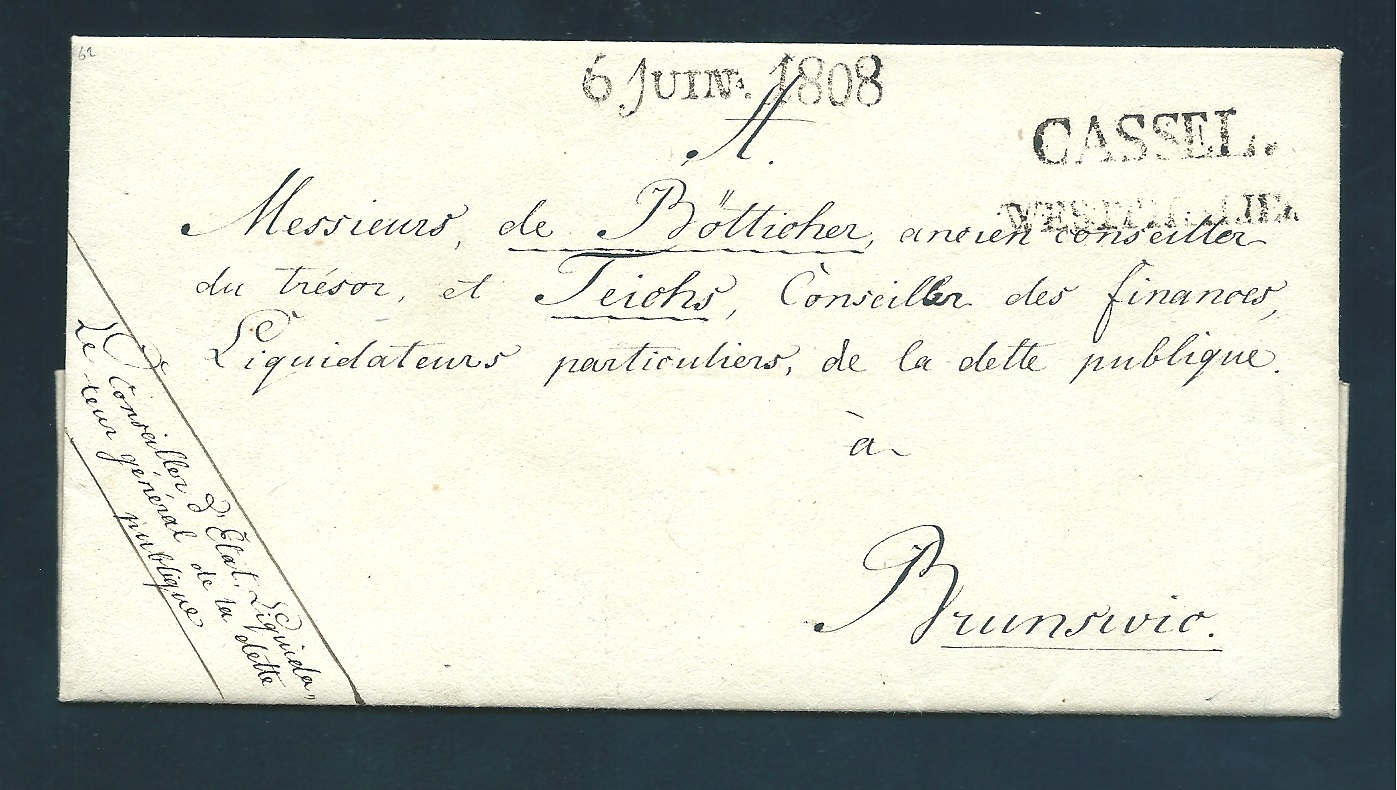 62
6 JUIN. 1808
A.
CASSEL.
WESTPHALIEN.
Messieurs, de Bötticher, ancien conseiller
du trésor, et Teichs, Conseiller des finances,
Liquidateurs particuliers, de la dette publique.
à
Brunswic.
Le Conseiller d'Etat, Liquida-
teur général de la dette
publique